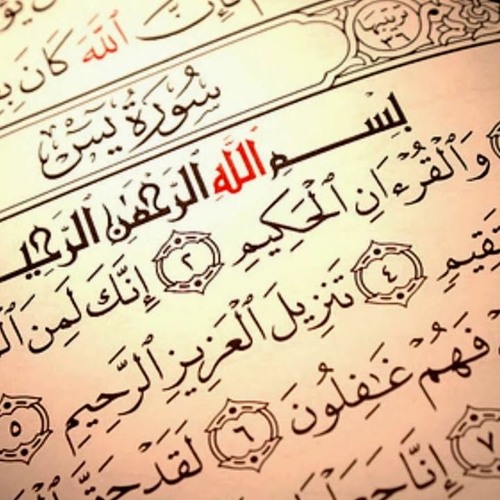 ٱللَّهَ كَانَ
ترتيبها ٣٦
سُورَةُ يسٓ
بِسْمِ ٱللَّهِ ٱلرَّحْمَٰنِ
وَٱلْقُرْءَانِ ٱلْحَكِيمِ ٢ إِنَّكَ لَمِنَ
٤ تَنزِيلَ ٱلْعَزِيزِ ٱلرَّحِيمِ ٥
فَهُمْ غَٰفِلُونَ ٦ لَقَدْ
٧ إِنَّا جَعَلْنَا